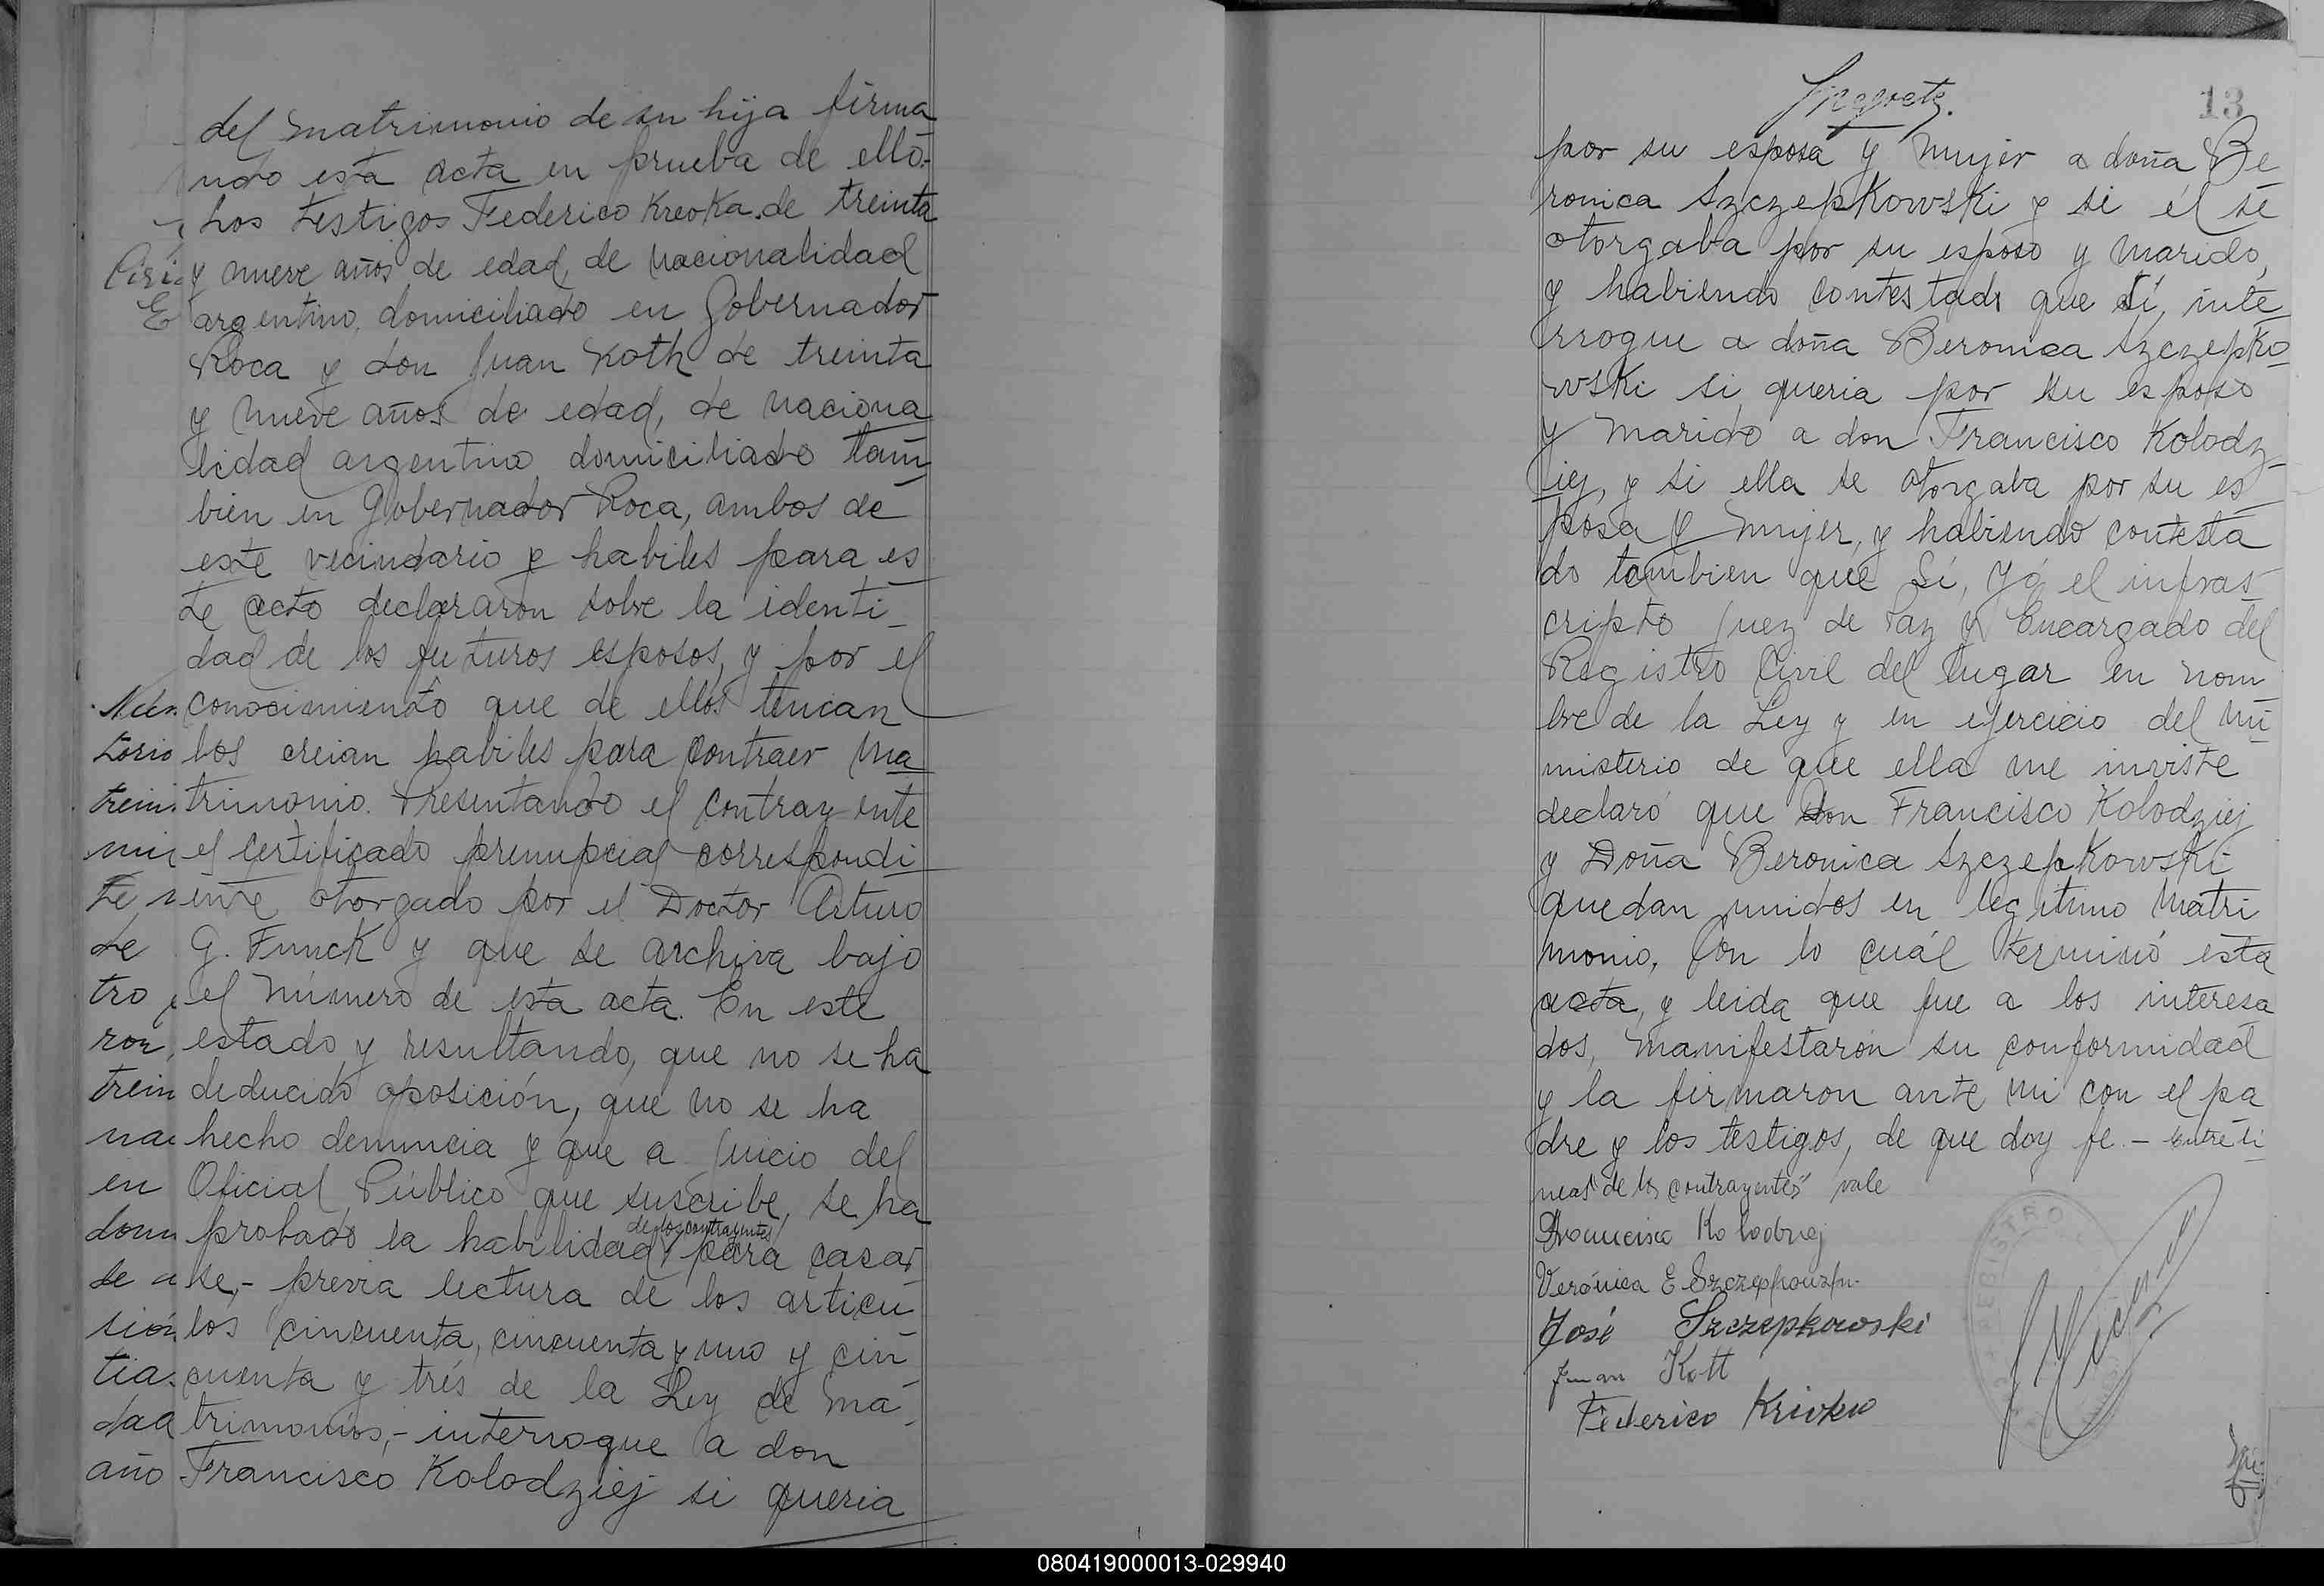 del matrimonio de su hija firma
ndo esta acta en prueba de ello.-
Los testigos Federico Krevka de treinta
y nueve años de edad, de nacionalidad
argentino, domiciliado en Gobernador
Roca y don Juan Koth de treinta
y nueve años de edad, de naciona
lidad argentino domiciliado tam
bien en Gobernador Roca, ambos de
este vecindario y habiles para es
te acto declararon sobre la identi_
dad de los futuros esposos, y por el
conocimiento que de ellos tenian
los creian habiles para contraer ma
trimonio. Presentando el contrayente
el certificado prenupcial correspondi
ente otorgado por el Doctor Arturo
G. Funck y que se archiva bajo
el número de esta acta. En este
estado y resultando, que no se ha
deducido oposición, que no se ha
hecho denuncia y que a juicio del
Oficial Público que suscribe, se ha
probado la habilidad de los contrayentes para casar
se,- previa lectura de los articu
los cincuenta, cincuenta y uno y cin
cuenta y trés de la Ley de ma
trimonios,- interrogue a don
Francisco Kolodziej si queria
Ciri
E
Nún
torio
trein
mi
te
de
tro
ron,
trein
nac
en
dom
se a
sión
tia
dad
año
13
por su esposa y mujer a doña Be
ronica Szczepkowski y si él se
otorgaba por su esposo y marido,
y habiendo contestado que sí, inte
rrogue a doña Beronica Szczepko
wski si queria por su esposo
y marido a don Francisco Kolodz
iej, y si ella se otorgaba por su es
posa y mujer, y habiendo contesta
do tambien que sí, Yó el infras
cripto Juez de Paz y Encargado del
Registro Civil del lugar en nom
bre de la Ley y en ejercicio del mi
misterio de que ella me inviste
declaró que Don Francisco Kolodziej
y Doña Beronica Szczepkowski
quedan unidos en legitimo matri
monio, Con lo cuál terminó esta
acta, y leida que fue a los interesa
dos, manifestarón su conformidad
y la firmaron ante mi con el pa
dre y los testigos, de que doy fe.- Entre li
neas "de los contrayentes" vale
Francisco Kolodziej
Verónica E Szczepkowski
José Szczepkowski
Juan Kott
Federico Krivka
REGISTRO
080419000013-029940